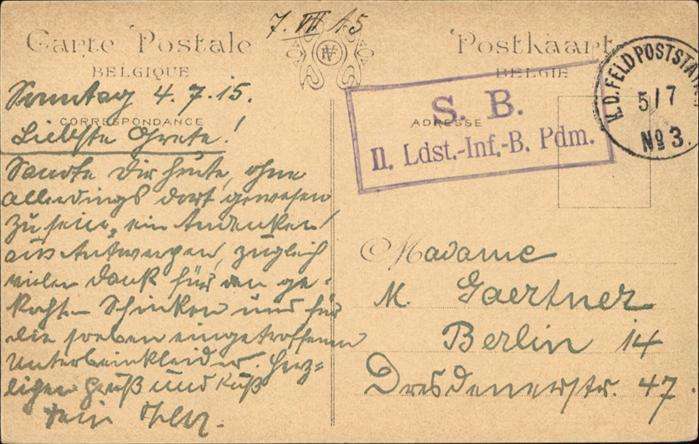 7. VII 15
Carte Postale
BELGIQUE
Postkaart
BELGIE
CORRESPONDANCE
ADRESSE
S. B.
II. Ldst.-Inf.-B. Pdm.
K.D. FELDPOSTSTA
5/7
No 3.
Sonntag 4.7.15.
Liebste Grete!
Sandte Dir heute, ohne
allerdings dort gewesen
zu sein, ein Andenken
aus Antwerpen, zugleich
vielen Dank für den ge-
kocht. Schinken und für
die soeben eingetroffenen
Unterbeinkleider. Herz-
lichen Gruß und Kuß
Dein
Madame
M. Gaertner
Berlin 14
Dresdenerstr. 47.